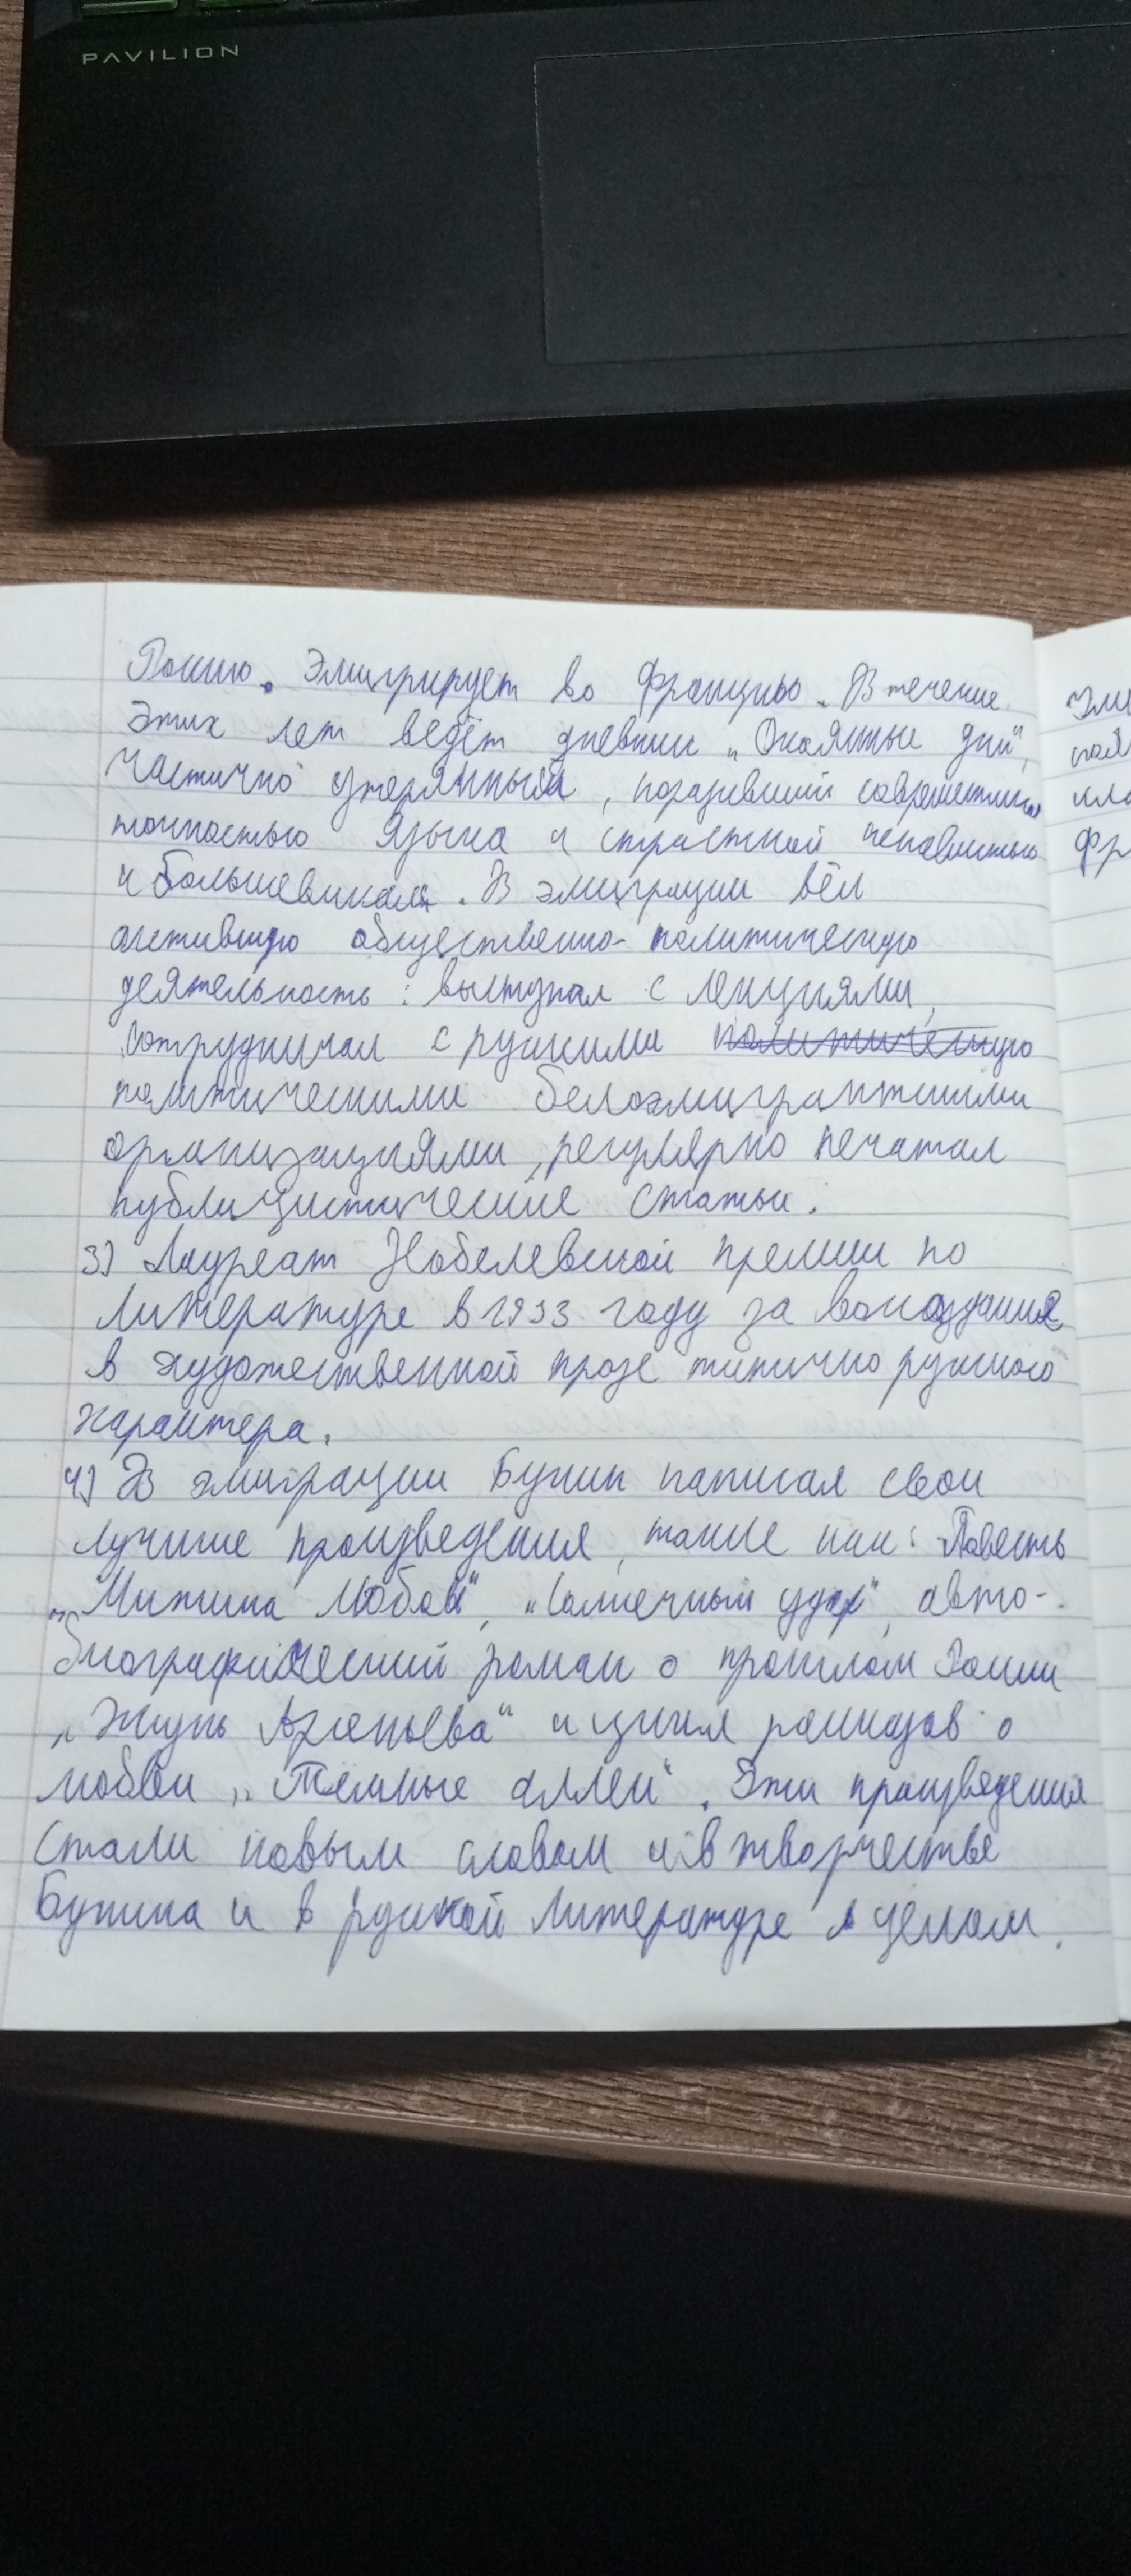 PAVILION
Россию. Эмигрирует во Францию. В течение
этих лет ведёт дневник „Окаянные дни",
частично утерянный, поразивший современников
точностью языка и страстной ненавистью
к большевикам. В эмиграции вёл
активную общественно-политическую
деятельность: выступал с лекциями,
сотрудничал с русскими политическую
политическими белоэмигрантскими
организациями, регулярно печатал
публицистические статьи.
3) Лауреат Нобелевской премии по
литературе в 1933 году за воссоздания
в художественной прозе типично русского
характера.
4) В эмиграции Бунин написал свои
лучшие произведения, такие как: Повесть
„Митина любовь", „Солнечный удар", авто-
биографический роман о прошлом России
„Жизнь Арсеньева" и цикл рассказов о
любви „Тёмные аллеи". Эти произведения
стали новым словом и в творчестве
Бунина и в русской литературе в целом.